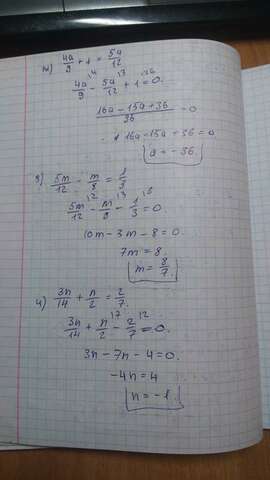 ж) 4a/9 + 1 = 5a/12
4a/9 \4 - 5a/12 \3 + 1 \36 = 0.
16a - 15a + 36 / 36 = 0
16a - 15a + 36 = 0
a = -36.
з) 5m/12 - m/8 = 1/3
5m/12 \2 - m/8 \3 - 1/3 \8 = 0
10m - 3m - 8 = 0.
7m = 8.
m = 8/7.
и) 3n/14 + n/2 = 2/7.
3n/14 + n/2 \7 - 2/7 \2 = 0.
3n - 7n - 4 = 0.
-4n = 4
n = -1.